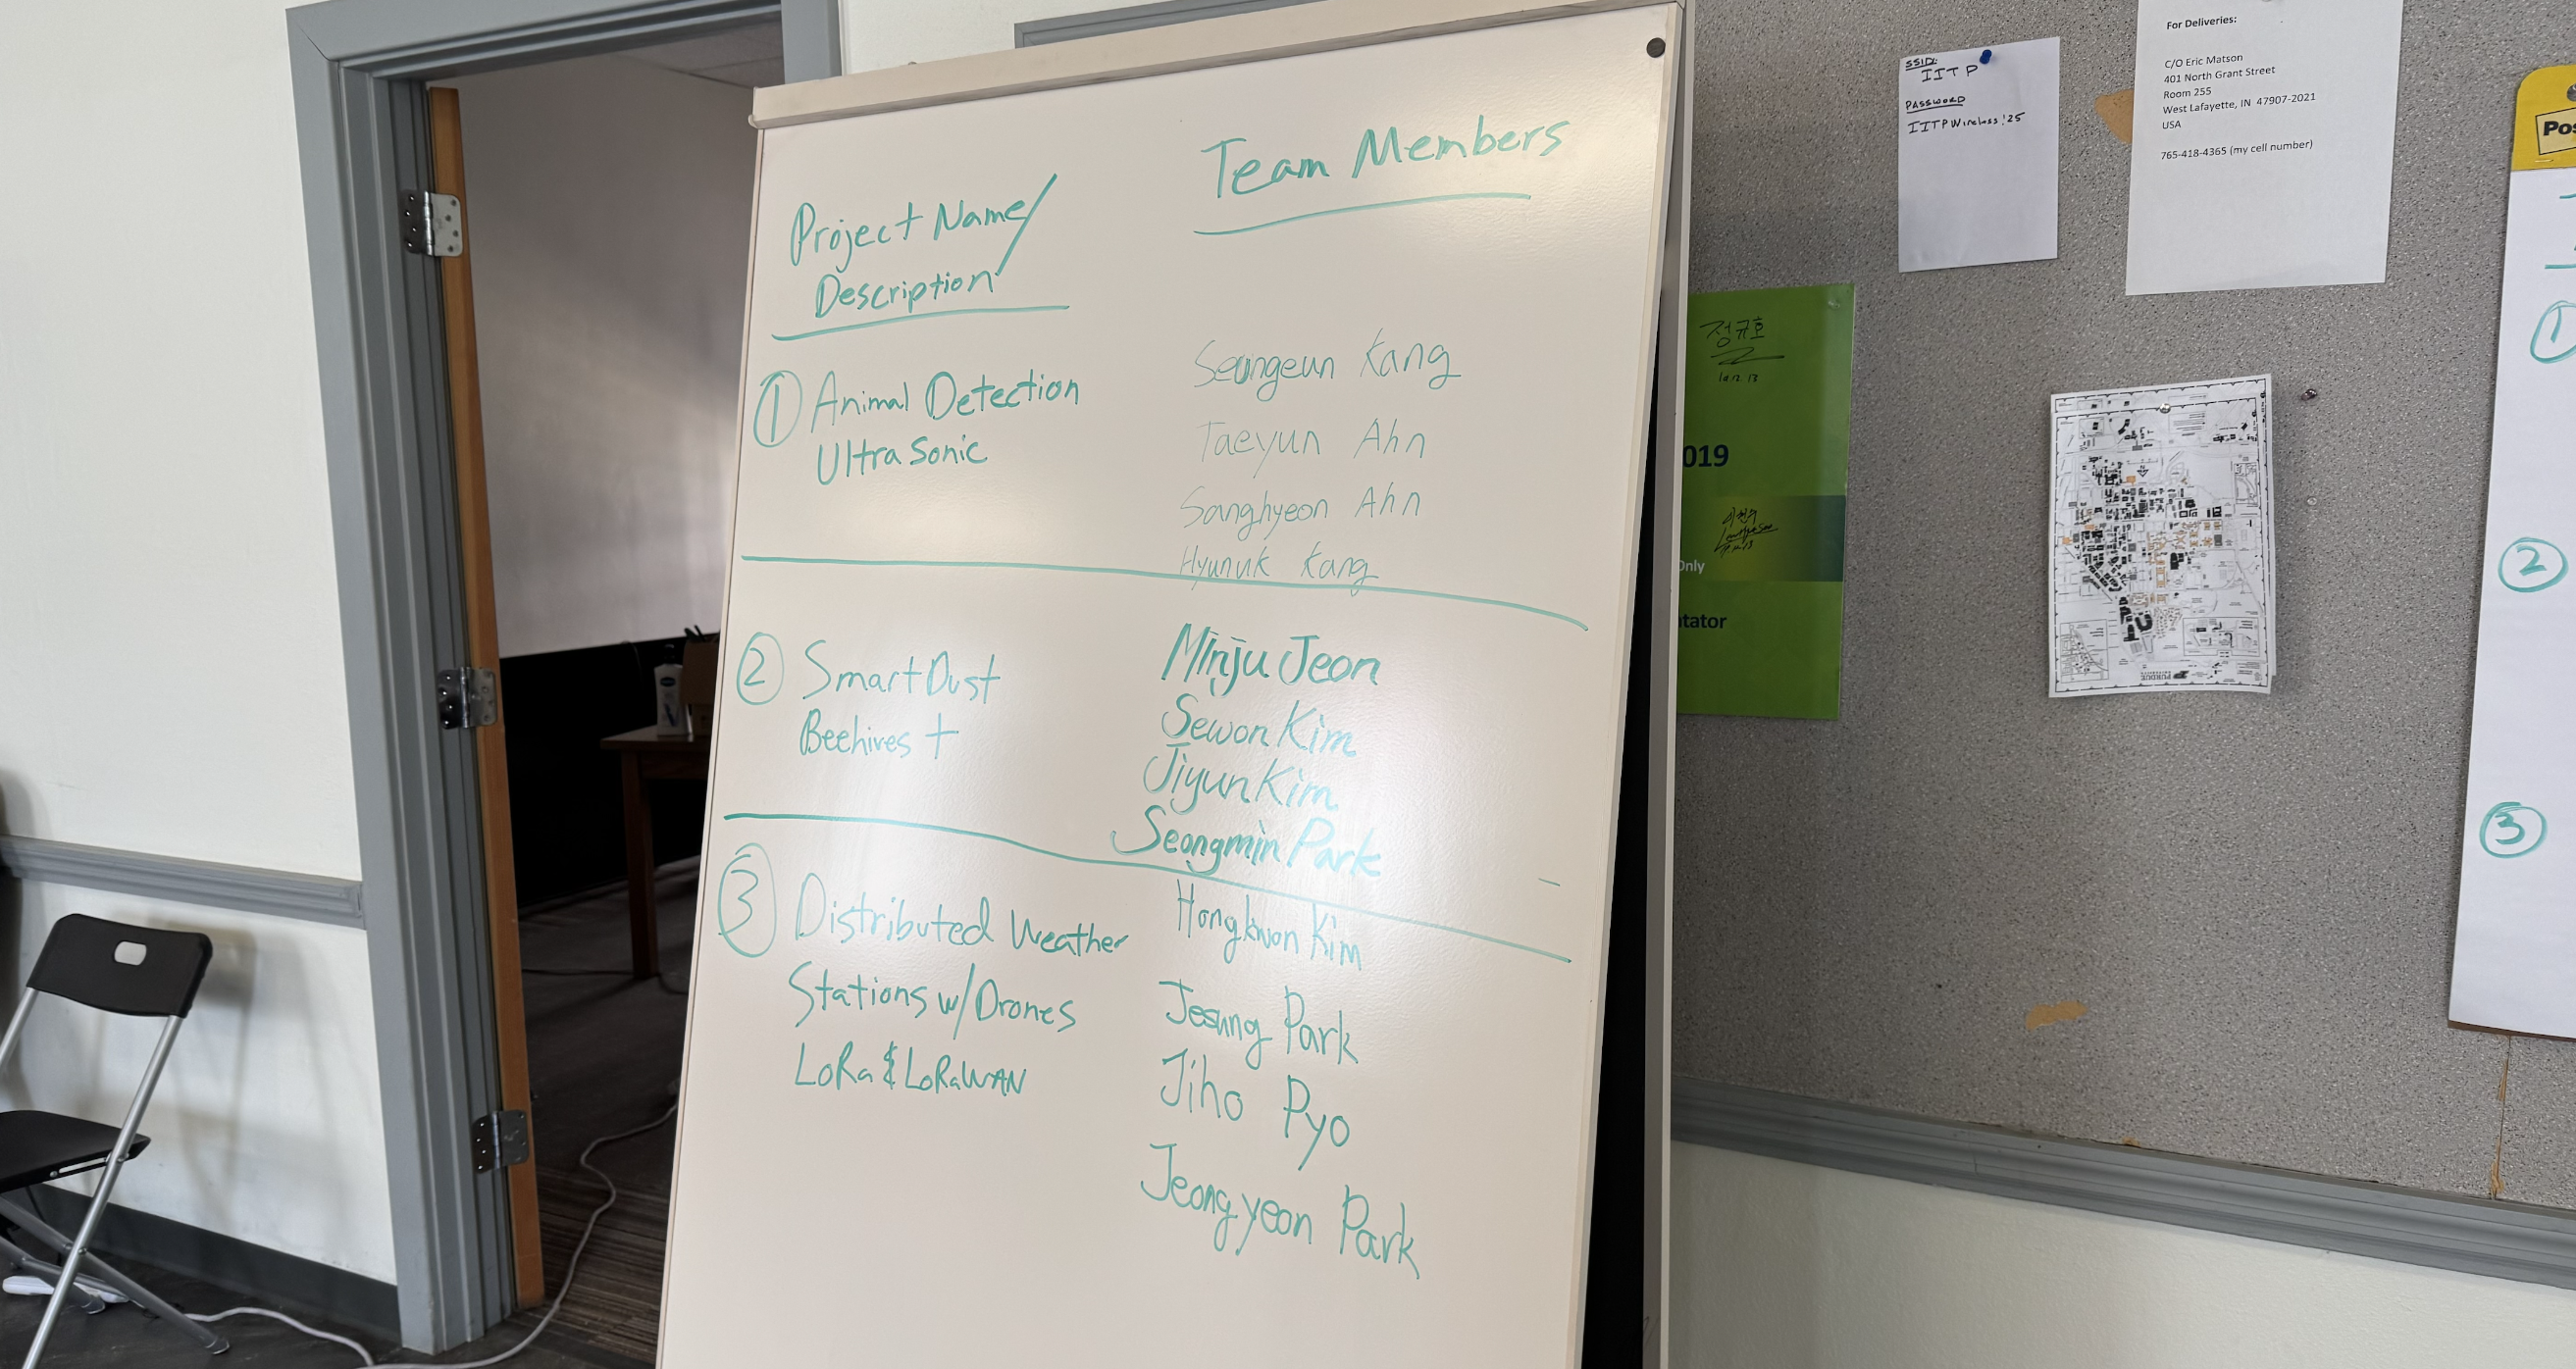 Project Name/
Description
Team Members
① Animal Detection
Ultra Sonic
Seungeun Kang
Taeyun Ahn
Sanghyeon Ahn
Hyunuk Kang
② Smart Dust
Beehives +
Minju Jeon
Sewon Kim
Jiyun Kim
Seongmin Park
③ Distributed Weather
Stations w/Drones
LoRa & LoRaWAN
Hongkwon Kim
Jesung Park
Jiho Pyo
Jeongyeon Park
SSID:
IITP
PASSWORD
IITPWireless!25
For Deliveries:
C/O Eric Matson
401 North Grant Street
Room 255
West Lafayette, IN 47907-2021
USA
765-418-4365 (my cell number)
정규호
019
Only
tator
PURDUE
Pos
①
②
③